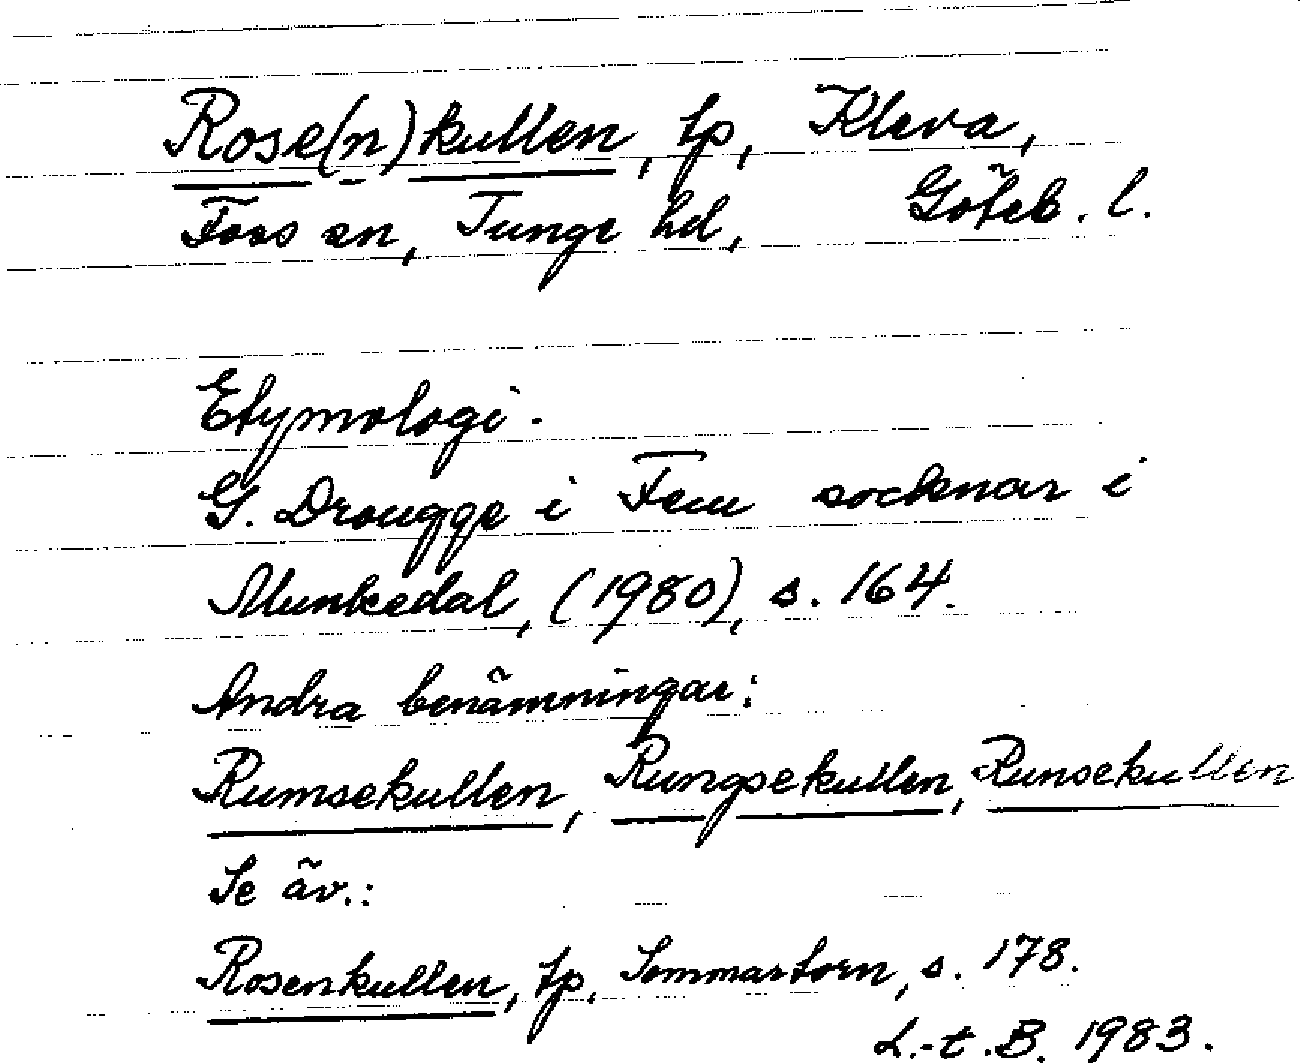 Rose(n)kullen, tp, Kleva,
Foss sn, Tunge hd, Göteb. l.
Etymologi.
G. Drougge i Fem socknar i
Munkedal, (1980), s. 164.
Andra benämningar:
Rumsekullen, Rungsekullen, Runsekullen
Se äv.:
Rosenkullen, tp, Sommartorn, s. 178.
L.-t. B. 1983.